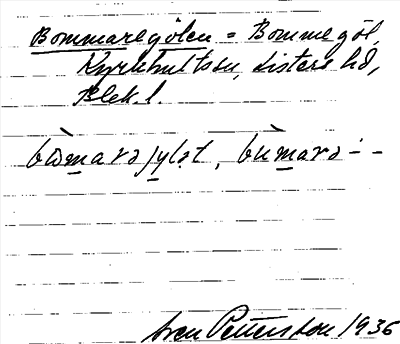 Bommaregölen = Bommegöl,
Kyrkhultssn, Listers hd,
Blek. l.
bòmarəjylət, bùmarə--
Sven Pettersson 1936